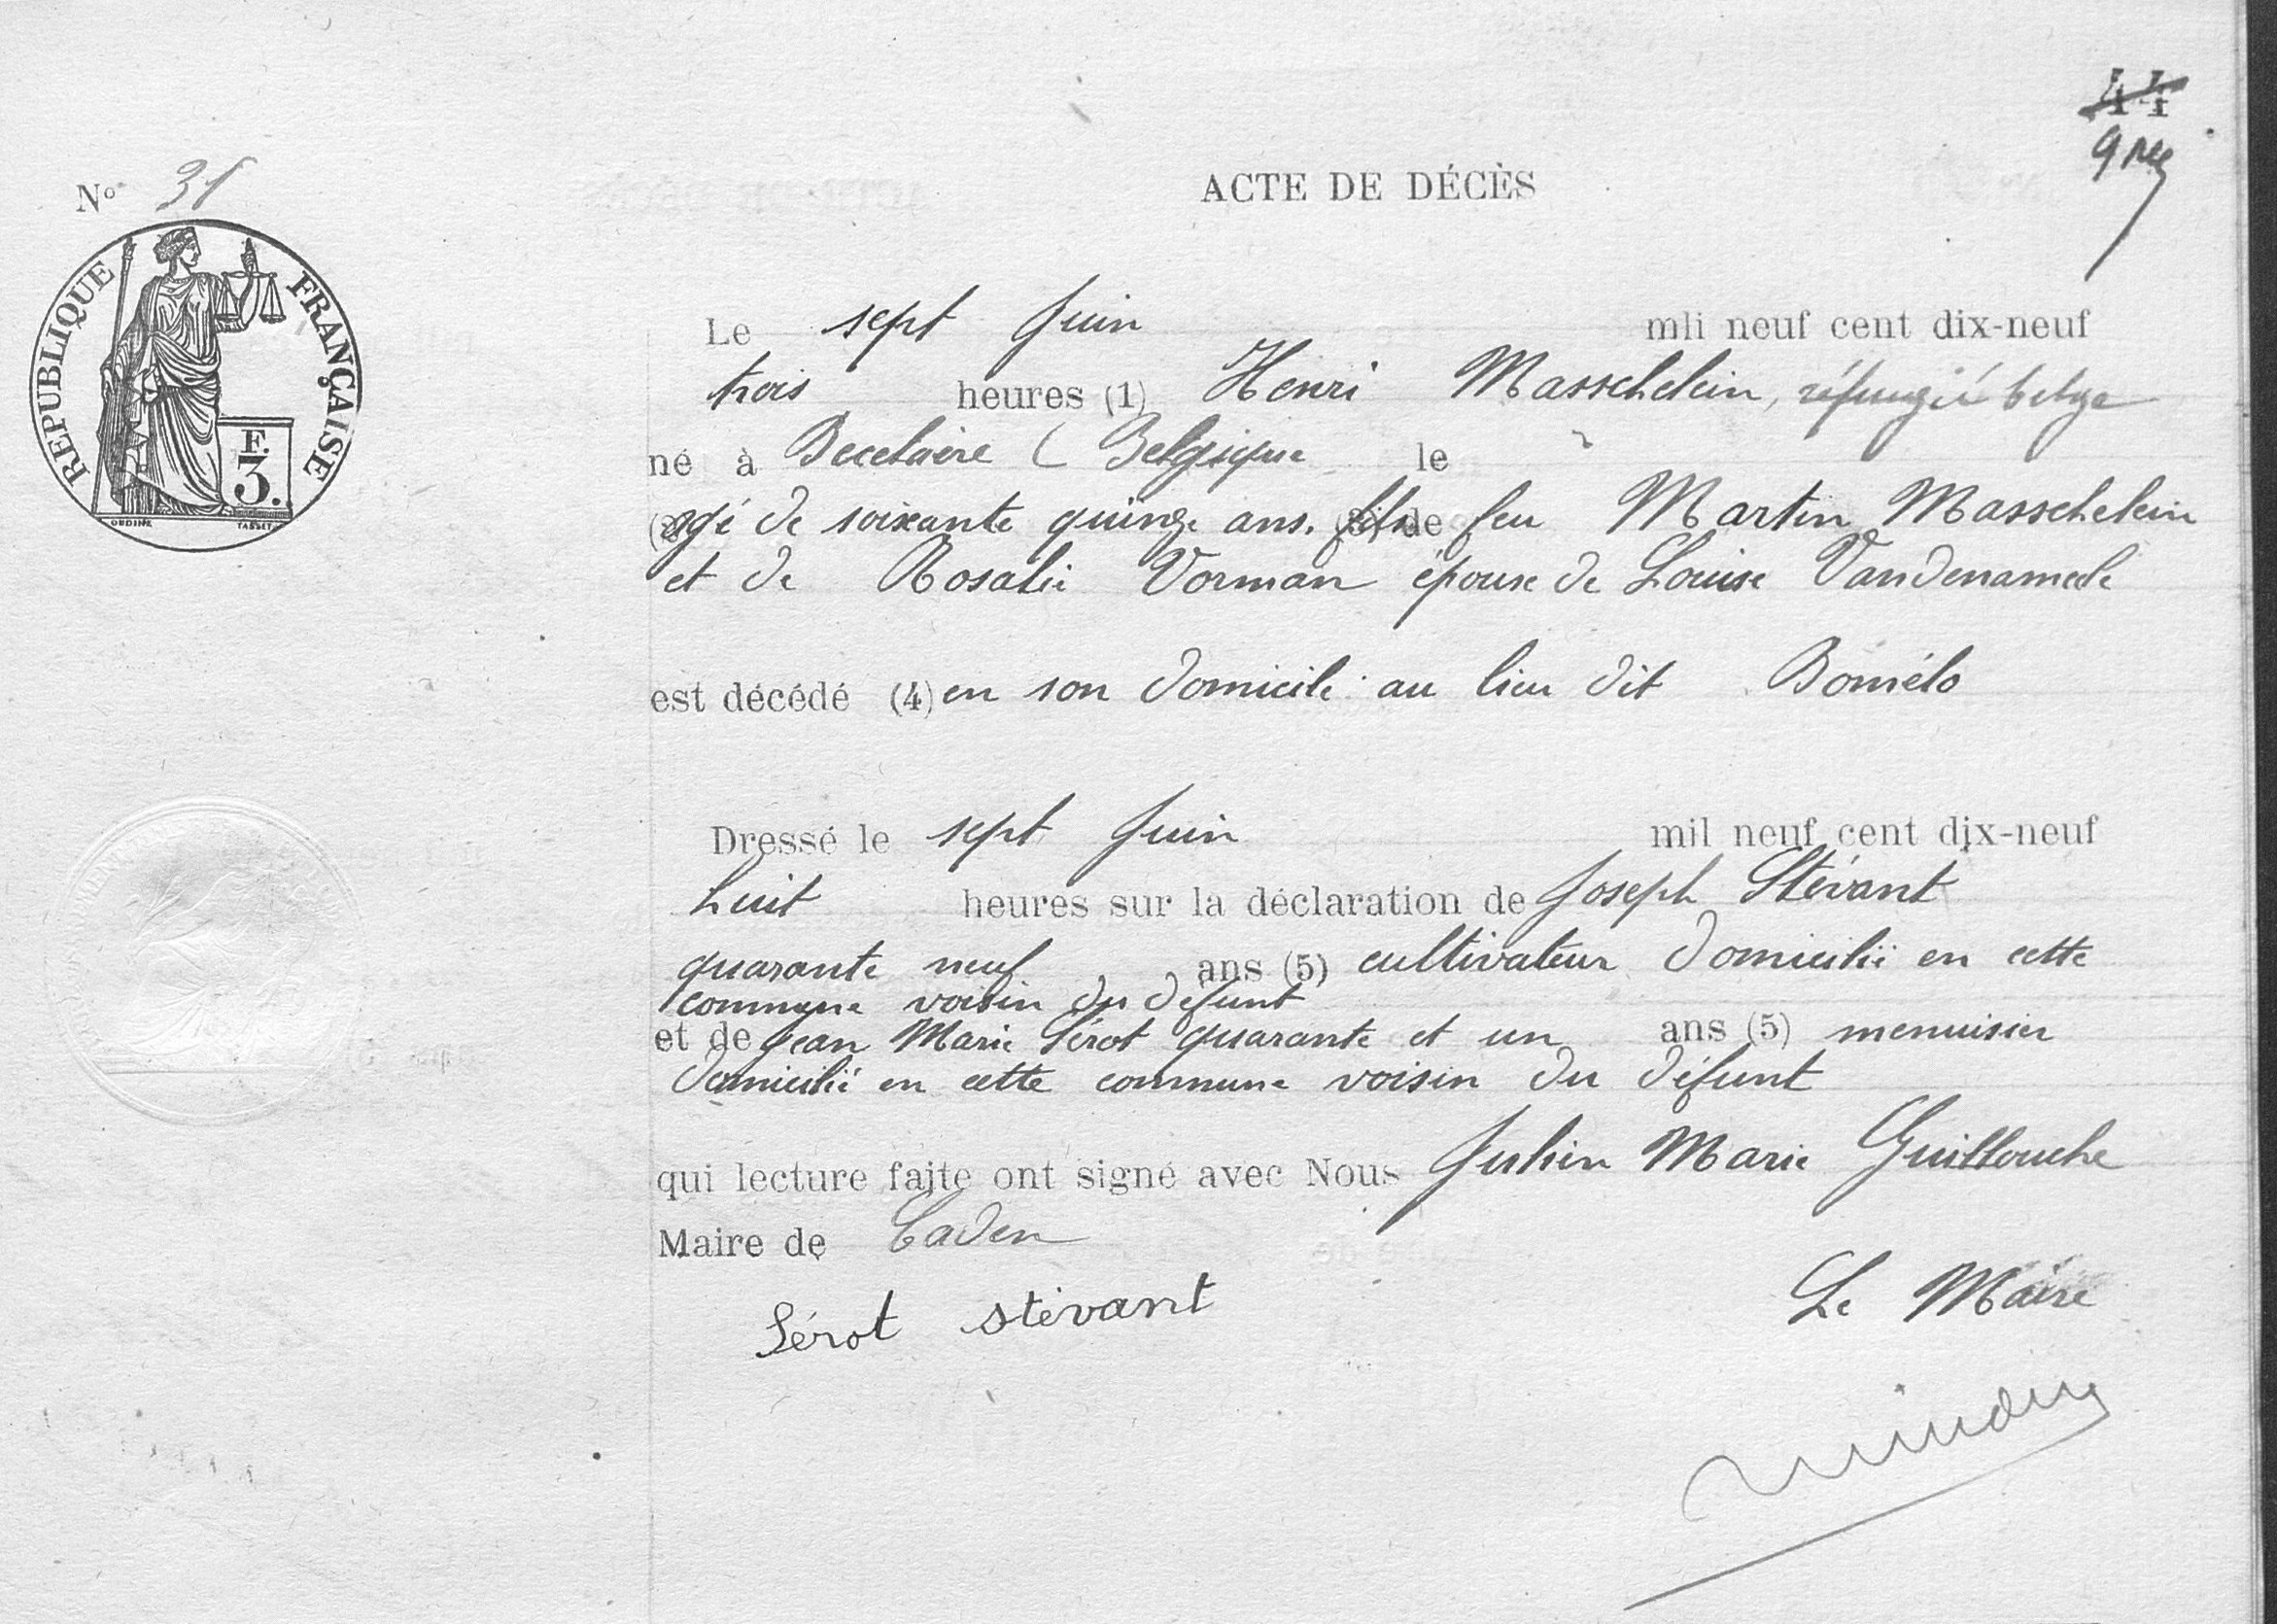 44
Nº 31
ACTE DE DÉCÈS
REPUBLIQUE FRANÇAISE
F.
3.
OUDINÉ TASSET
Le sept Juin mli neuf cent dix-neuf
trois heures (1) Henri Masschelein, réfugié belge
né à Becelaère ( Belgique le
agé de soixante quinze ans. fils de feu Martin Masschelein
et de Rosalie Vorman époux de Louise Vandenamele
est décédé (4) en son domicile au lieu dit Bomélo
Dressé le sept Juin mil neuf cent dix-neuf
huit heures sur la déclaration de Joseph Stévant
quarante neuf ans (5) cultivateur domicilié en cette
commune voisin du défunt
et de Jean Marie Sérot quarante et un ans (5) menuisier
domicilié en cette commune voisin du défunt
qui lecture faite ont signé avec Nous Julien Marie Guillouche
Maire de Caden
Le Maire
Sérot stévant